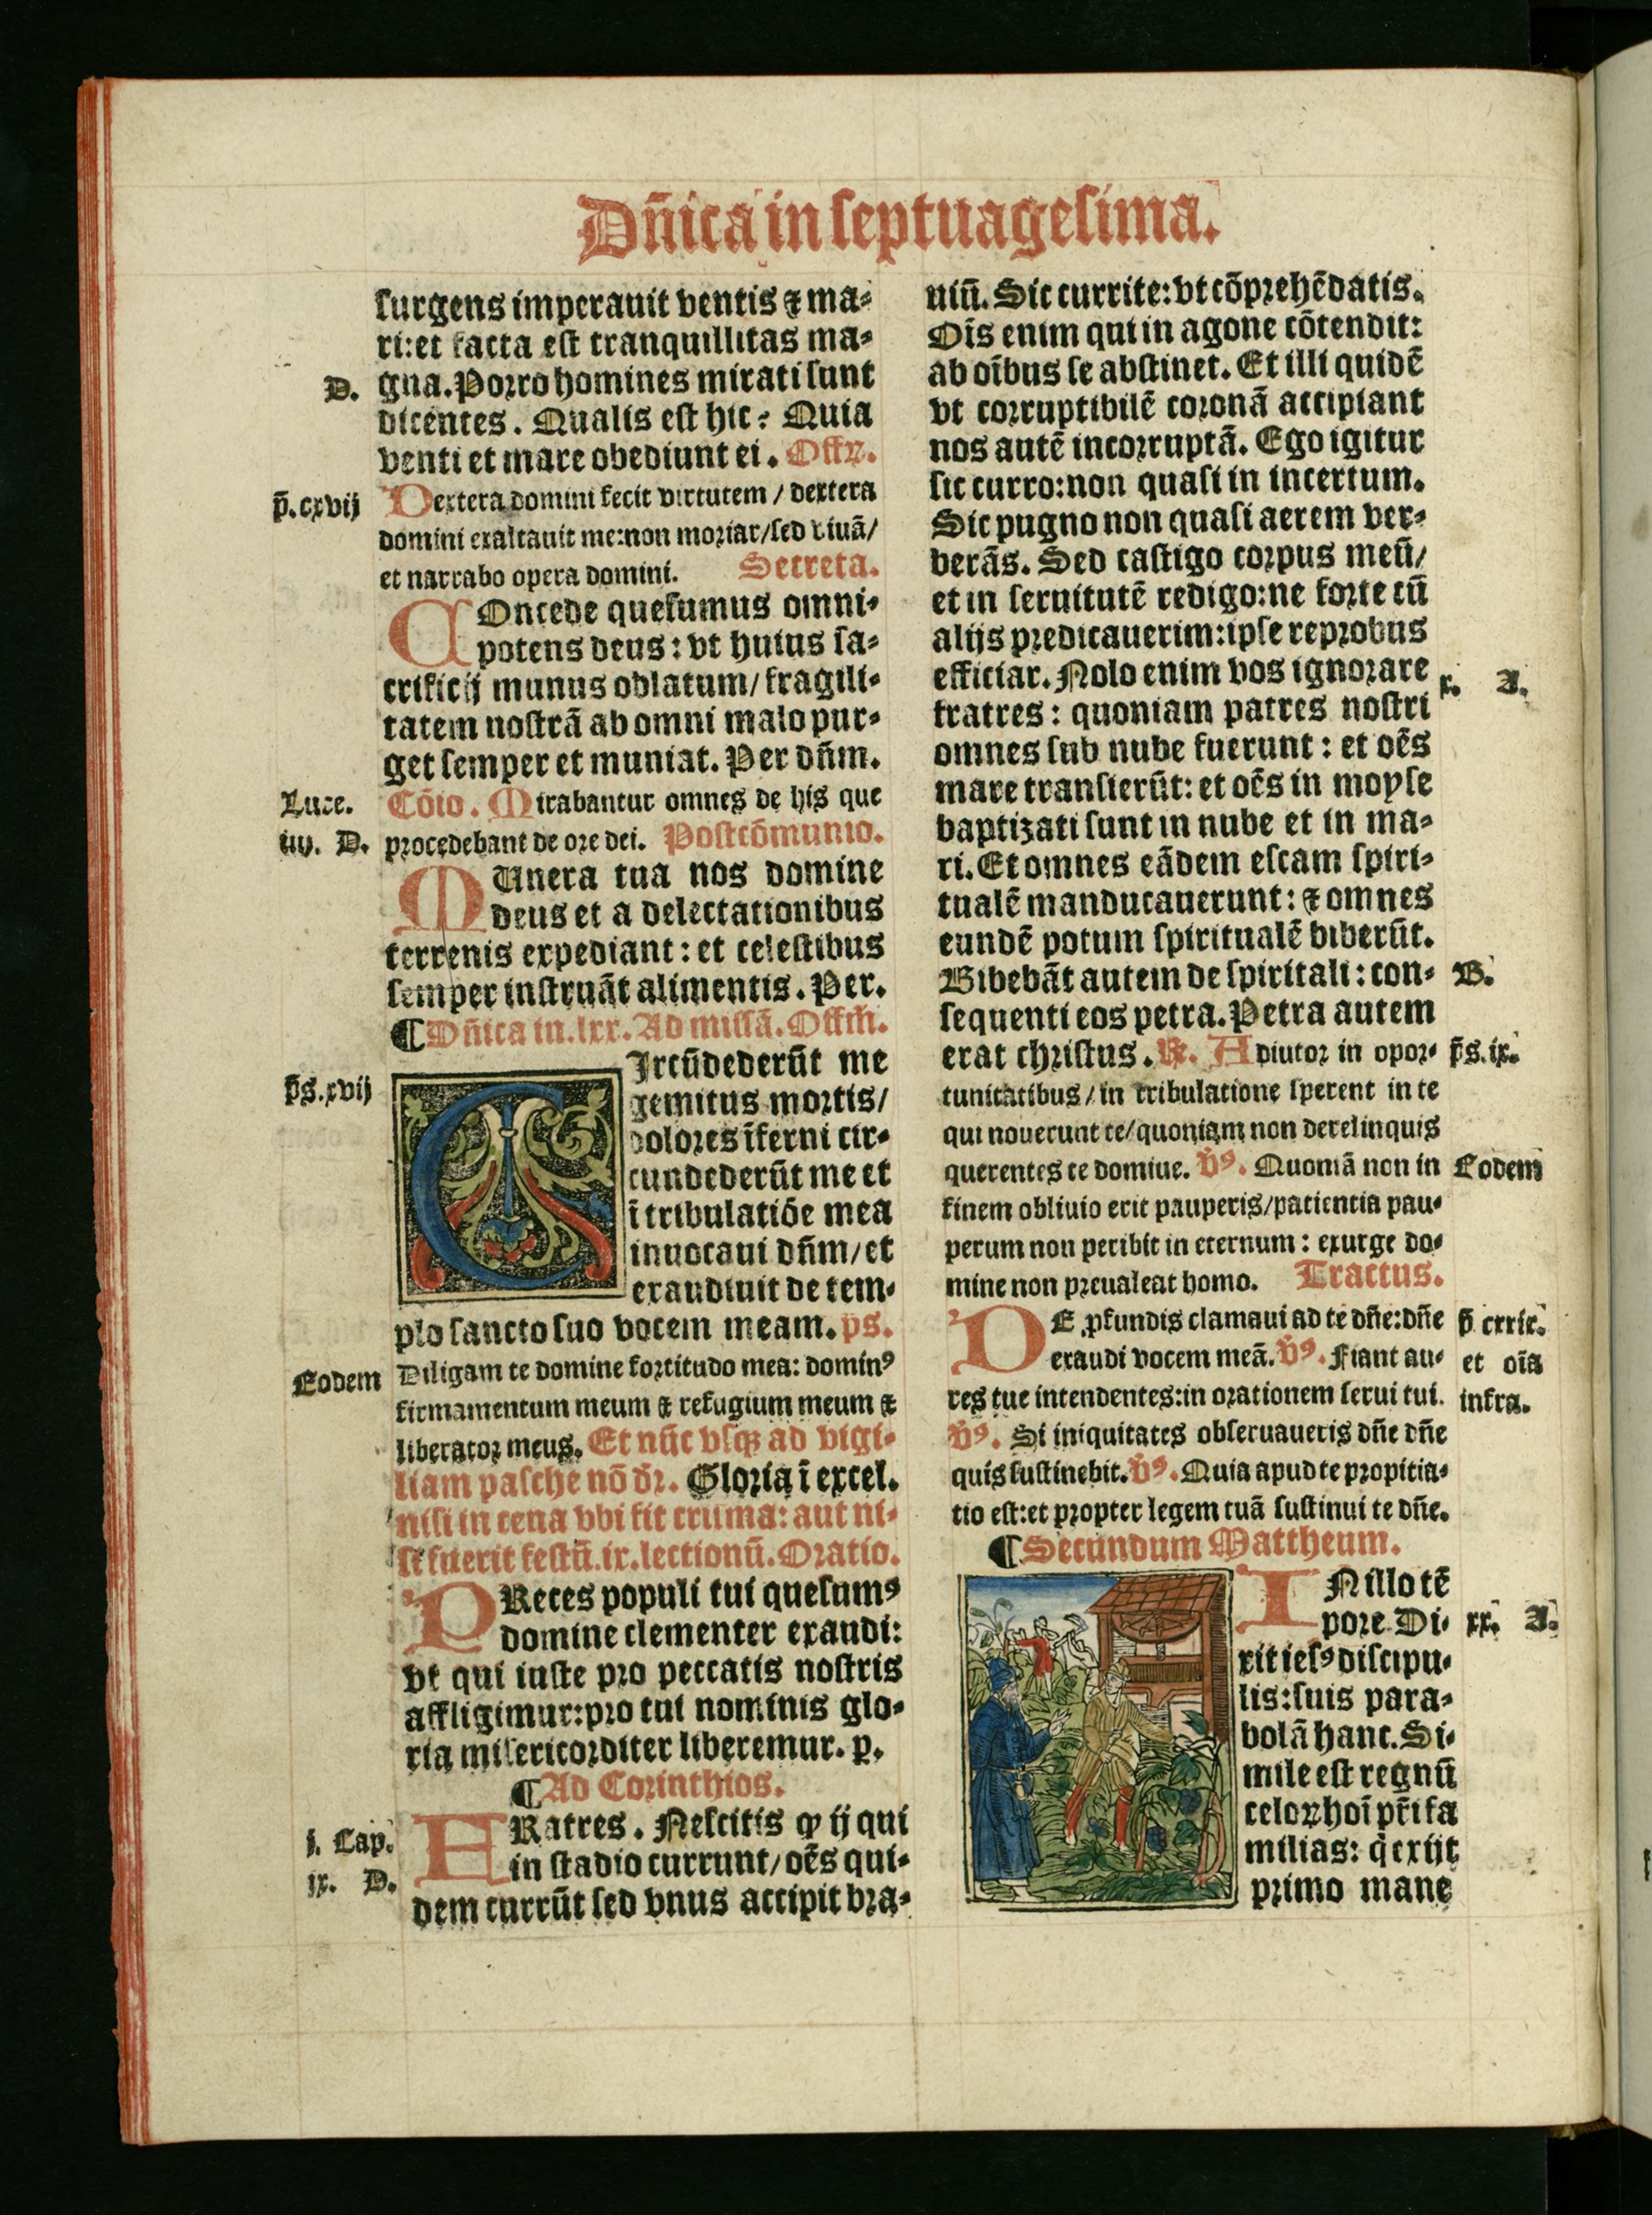 Dñica in septuagesima.
surgens imperauit ventis ⁊ ma⸗
ri:et facta est tranquillitas ma⸗
D.
gna. Porro homines mirati sunt
dicentes. Qualis est hic? Quia
venti et mare obediunt ei. Offꝝ.
p̄. cxvij
Dextera domini fecit virtutem / dextera
domini exaltauit me:non moriar/sed viuā/
et narrabo opera domini. Secreta.
COncede quesumus omni⸗
potens deus: vt huius sa⸗
crificij munus oblatum/ fragili⸗
tatem nostrā ab omni malo pur⸗
get semper et muniat. Per dñm.
Luce.
Cōio. Mirabantur omnes de his que
iiij. D.
procedebant de ore dei. Postcōmunio.
MUnera tua nos domine
deus et a delectationibus
terrenis expediant: et celestibus
semper instruāt alimentis. Per.
¶ Dñica in .lxx. Ad missā. Offm̄.
CIrcūdederūt me
p̄s. xvij
gemitus mortis/
dolores īferni cir⸗
cundederūt me et
ī tribulatiōe mea
inuocaui dñm/et
exaudiuit de tem⸗
plo sancto suo vocem meam. ps.
Eodem
Diligam te domine fortitudo mea: dominꝰ
firmamentum meum ⁊ refugium meum ⁊
liberator meus. Et nūc vsqꝫ ad vigi⸗
liam pasche nō dr̄. Gloria ī excel.
nisi in cena vbi fit crisma: aut ni⸗
si fuerit festū .ix. lectionū. Oratio.
PReces populi tui quesumꝰ
domine clementer exaudi:
vt qui iuste pro peccatis nostris
affligimur:pro tui nominis glo⸗
ria misericorditer liberemur. p.
¶ Ad Corinthios.
j. Cap.
FRatres. Nescitis ꝙ ij qui
ix. D.
in stadio currunt/ oēs qui⸗
dem currūt sed vnus accipit bra⸗
uiū. Sic currite:vt cōprehēdatis.
Oīs enim qui in agone cōtendit:
ab oībus se abstinet. Et illi quidē
vt corruptibilē coronā accipiant
nos autē incorruptā. Ego igitur
sic curro:non quasi in incertum.
Sic pugno non quasi aerem ver⸗
berās. Sed castigo corpus meū/
et in seruitutē redigo:ne forte cū
alijs predicauerim:ipse reprobus
efficiar. Nolo enim vos ignorare
x. A.
fratres: quoniam patres nostri
omnes sub nube fuerunt: et oēs
mare transierūt: et oēs in moyse
baptizati sunt in nube et in ma⸗
ri. Et omnes eādem escam spiri⸗
tualē manducauerunt: ⁊ omnes
eundē potum spiritualē biberūt.
Bibebāt autem de spiritali: con⸗
B.
sequenti eos petra. Petra autem
erat christus. ℟. Adiutor in opor⸗
p̄s. ix.
tunitatibus / in tribulatione sperent in te
qui nouerunt te/quoniam non derelinquis
querentes te domine. v̄ꝰ. Quoniā non in
Eodem
finem obliuio erit pauperis/patientia pau⸗
perum non peribit in eternum: exurge do⸗
mine non preualeat homo. Tractus.
DE ꝓfundis clamaui ad te dñe:dñe
p̄ cxxix.
exaudi vocem meā. v̄ꝰ. Fiant au⸗
et oīa
res tue intendentes:in orationem serui tui.
infra.
v̄ꝰ. Si iniquitates obseruaueris dñe dñe
quis sustinebit. v̄ꝰ. Quia apud te propitia⸗
tio est:et propter legem tuā sustinui te dñe.
¶ Secundum Mattheum.
IN illo tē
pore. Di⸗
xx. A.
xit iesꝰ discipu⸗
lis:suis para⸗
bolā hanc. Si⸗
mile est regnū
celoꝝ hoī pr̄i fa
milias: q̇ exijt
primo mane